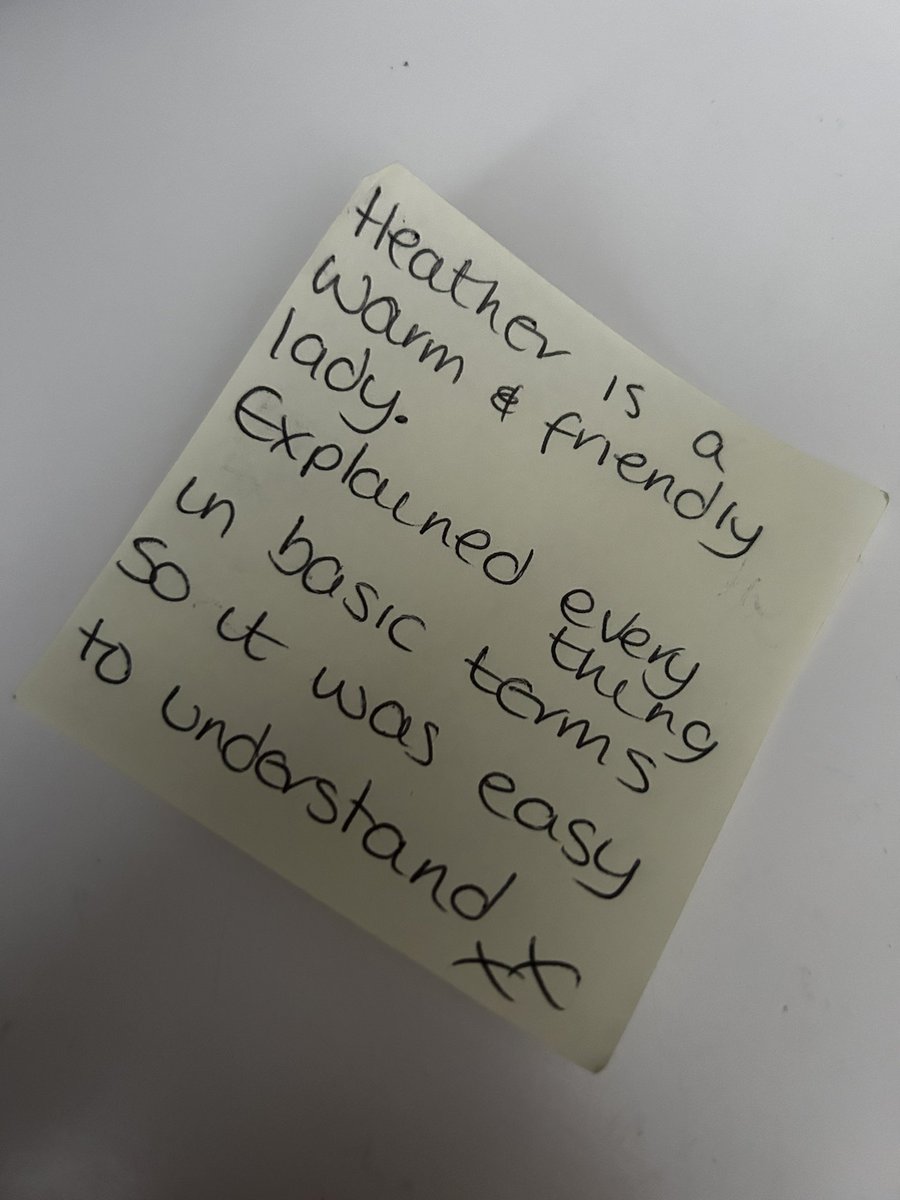 Heather is a
warm & friendly
lady.
Explained every
thing
in basic terms
so it was easy
to understand
xx